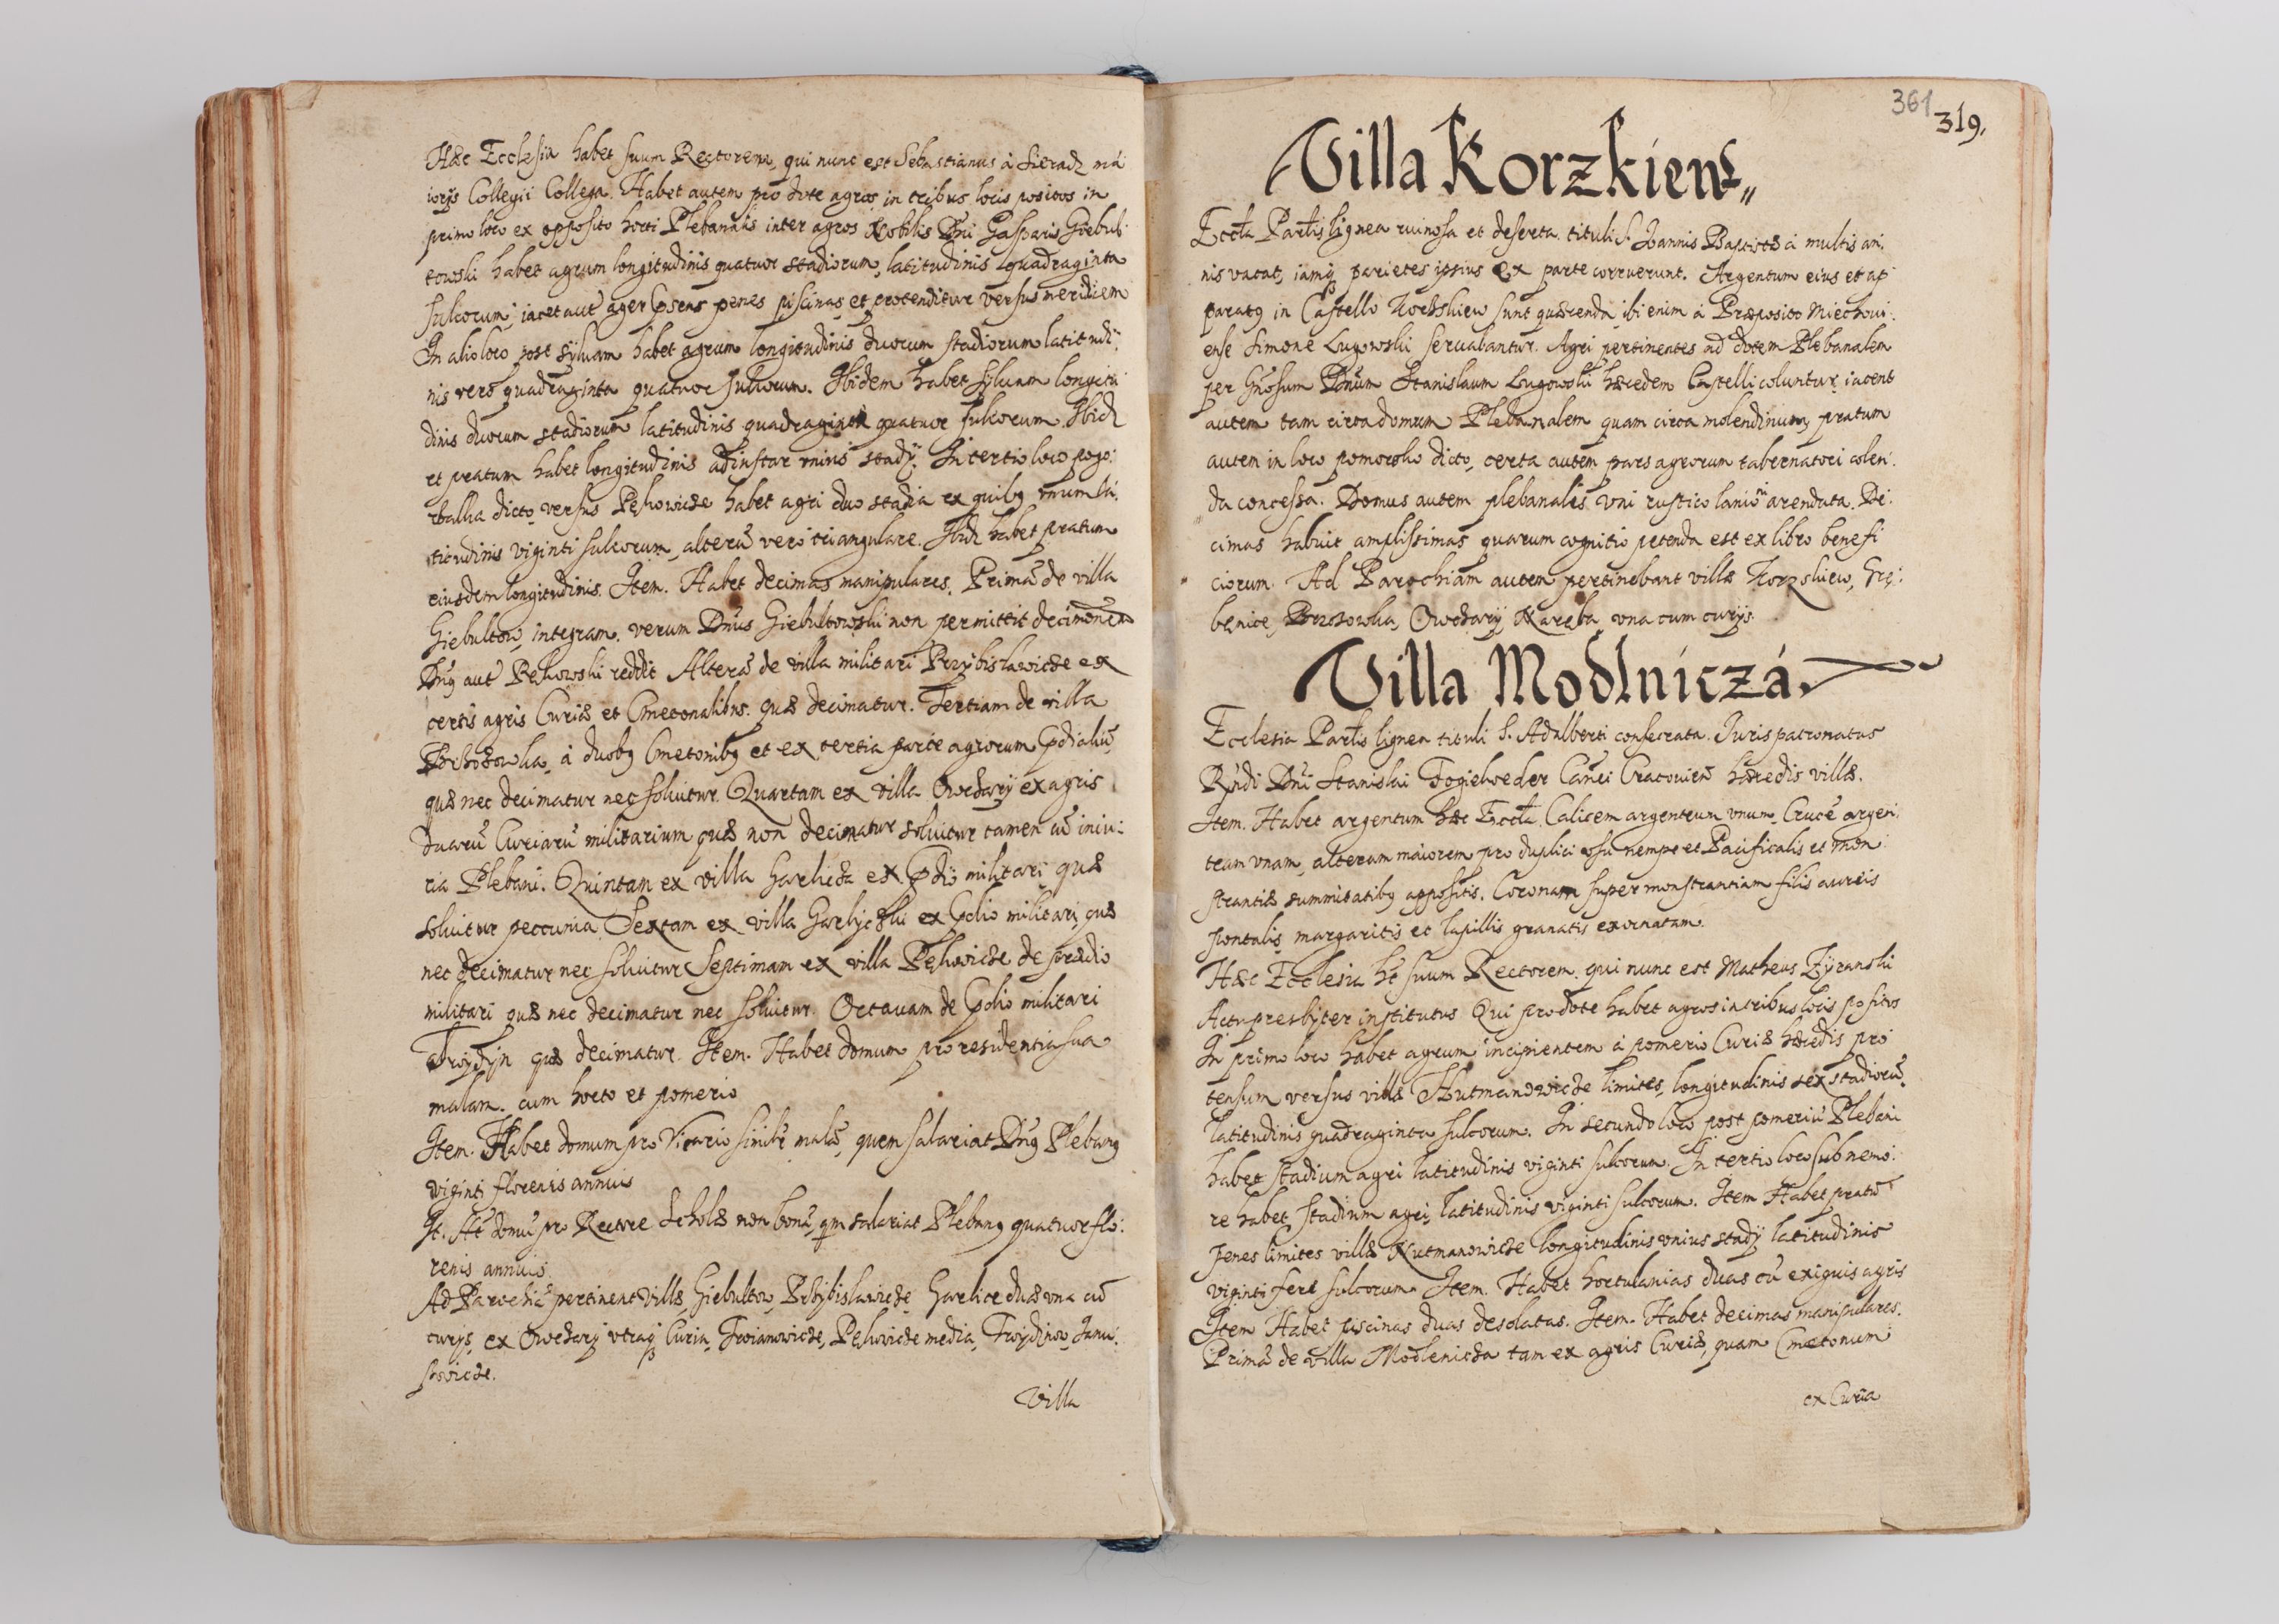 Hæc Ecclesia habet suum Rectorem, qui nunc est Sebastianus à Sieradz ma:
ioris Collegii Collega. Habet autem pro dote agros in tribus locis positos in
primo loco ex opposito horti Plebanalis inter agros Nobilis Dni Gasparis Giebul:
towski habet agrum longitudinis quatuor stadiorum, latitudinis quadraginta
sulcorum, iacet aut ager ipse penes piscinas et protenditur versus meridiem
In alio loco post syluam habet agrum longitudinis duorum stadiorum latitudi:
nis vero quadraginta quatuor sulcorum. Ibidem habet syluam longitu
dinis duorum stadiorum latitudinis quadraginta quatuor sulcorum. Ibid
et pratum habet longitudinis adinstar unius stadÿ. In tertio loco pogo:
rzalka dicto, versus Pękowicze habet agri duo stadia ex quibꝯ unum la:
titudinis viginti sulcorum, alterũ vero triangulare. Ibid habet pratum
eiusdem longitudinis. Item. Habet decimas manipulares. Primã de villa
Giebultow, integram. verum Dnus Giebultowski non permittit decimonem
Dnꝯ aut Pękowski reddit Alterã de villa militari Przybisławicze ex
certis agris Curiæ et Cmetonalibus. quæ decimatur. Tertiam de villa
Brzozowka, à duobꝯ Cmetonibꝯ et ex tertia parte agrorum Prdialiũ,
quæ nec decimatur nec soluitur. Quartam ex villa Owczarÿ ex agris
duarũ Curiarũ militarium quæ non decimatur soluitur tamen cũ iniu:
ria Plebani. Quintam ex villa Garlicza ex Prdio militari quæ
soluitur peccunia. Sextam ex villa Garlyczki ex Prdio militari, quæ
nec decimatur nec soluitur Septimam ex villa Pękowicze de prædio
militari quæ nec decimatur nec soluitur. Octauam de Prdio militari
Troÿdÿn quæ decimatur. Item. Habet domum pro residentia sua
malam. cum horto et pomerio
Item. Habet domum pro Vicario similr malã, quem salariat Dnꝯ Plebanꝯ
viginti florenis annuis
It. Ht domũ pro Rectore Scholæ non bonã, qm salariat Plebanꝯ quatuor flo:
renis annuis.
Ad Parochiã pertinent Villæ, Giebultow, Przÿbislawicze, Garlice duæ una cũ
curijs, ex Owczarÿ utraqꝫ Curia, Troianowicze, Pękowicze media, Troÿdinow, Janu:
szowicze.
Villa
361
319.
Villa Korzkiew
Eccla Partis lignea ruinosa et deserta, tituli S. Joannis Baptistæ à multis an:
nis vacat, iamqꝫ parietes ipsius ex parte corruerunt. Argentum eius et ap
paratꝯ in Castello Korzkiew sunt quærenda, ibi enim à Præposito Miechoui:
ense Simone Lugowski seruabantur. Agri pertinentes ad dotem Plebanalem
per Gnosum Dnum Stanislaum Lugowski hæredem Castelli coluntur, iacent
autem tam circa domum Plebanalem quam circa molendinum, pratum
autem in loco pomorsko dicto, certa autem pars agrorum tabernatori colen:
da concessa. Domus autem plebanalis uni rustico lanioni arendata. De:
cimas habuit amplissimas quarum cognitio petenda est ex libro benefi
ciorum. Ad Parochiam autem pertinebant villæ Korzskiew, Grę:
benice, Brzozowka, Owczarÿ, Naręba, una cum curijs.
Villa Modlniczá.
Ecclesia Partis lignea tituli S. Adalberti consecrata. Juris patronatus
Rndi Dni Stanislai Fogielweder Canci Cracouień hæredis villæ.
Item. Habet argentum hæc Eccla Calicem argenteum unum, Crucẽ argen:
team unam, alteram maiorem pro duplici usu nempe et Pacificalis et mon
strantiæ summitatibꝯ appositis. Coronam super monstrantiam filis aureis
pontalis margaritis et lapillis granatis exornatam.
Hæc Ecclesia ht suum Rectorem, qui nunc est Matheus Zÿranski
Actu presbyter institutus Qui pro dote habet agros in tribus locis positos
In primo loco habet agrum incipientem à pomerio Curiæ hæredis pro
tensum versus villæ Hutmanowicze limites, longitudinis sex stadiorũ,
latitudinis quadraginta sulcorum. In secundo loco post pomeriũ Plebani
habet stadium agri latitudinis viginti sulcorum. In tertio loco sub nemo:
re habet, stadium agri, latitudinis viginti sulcorum. Item Habet pratũ
penes limites villæ Kutmanowicze longitudinis unius stadÿ latitudinis
viginti fere sulcorum. Item. Habet hortulanias duas cũ exiguis agris
Item Habet piscinas duas desolatas. Item. Habet decimas manipulares.
Primã de villa Modlenicza tam ex agris Curiæ, quam Cmetonum
ex Curia